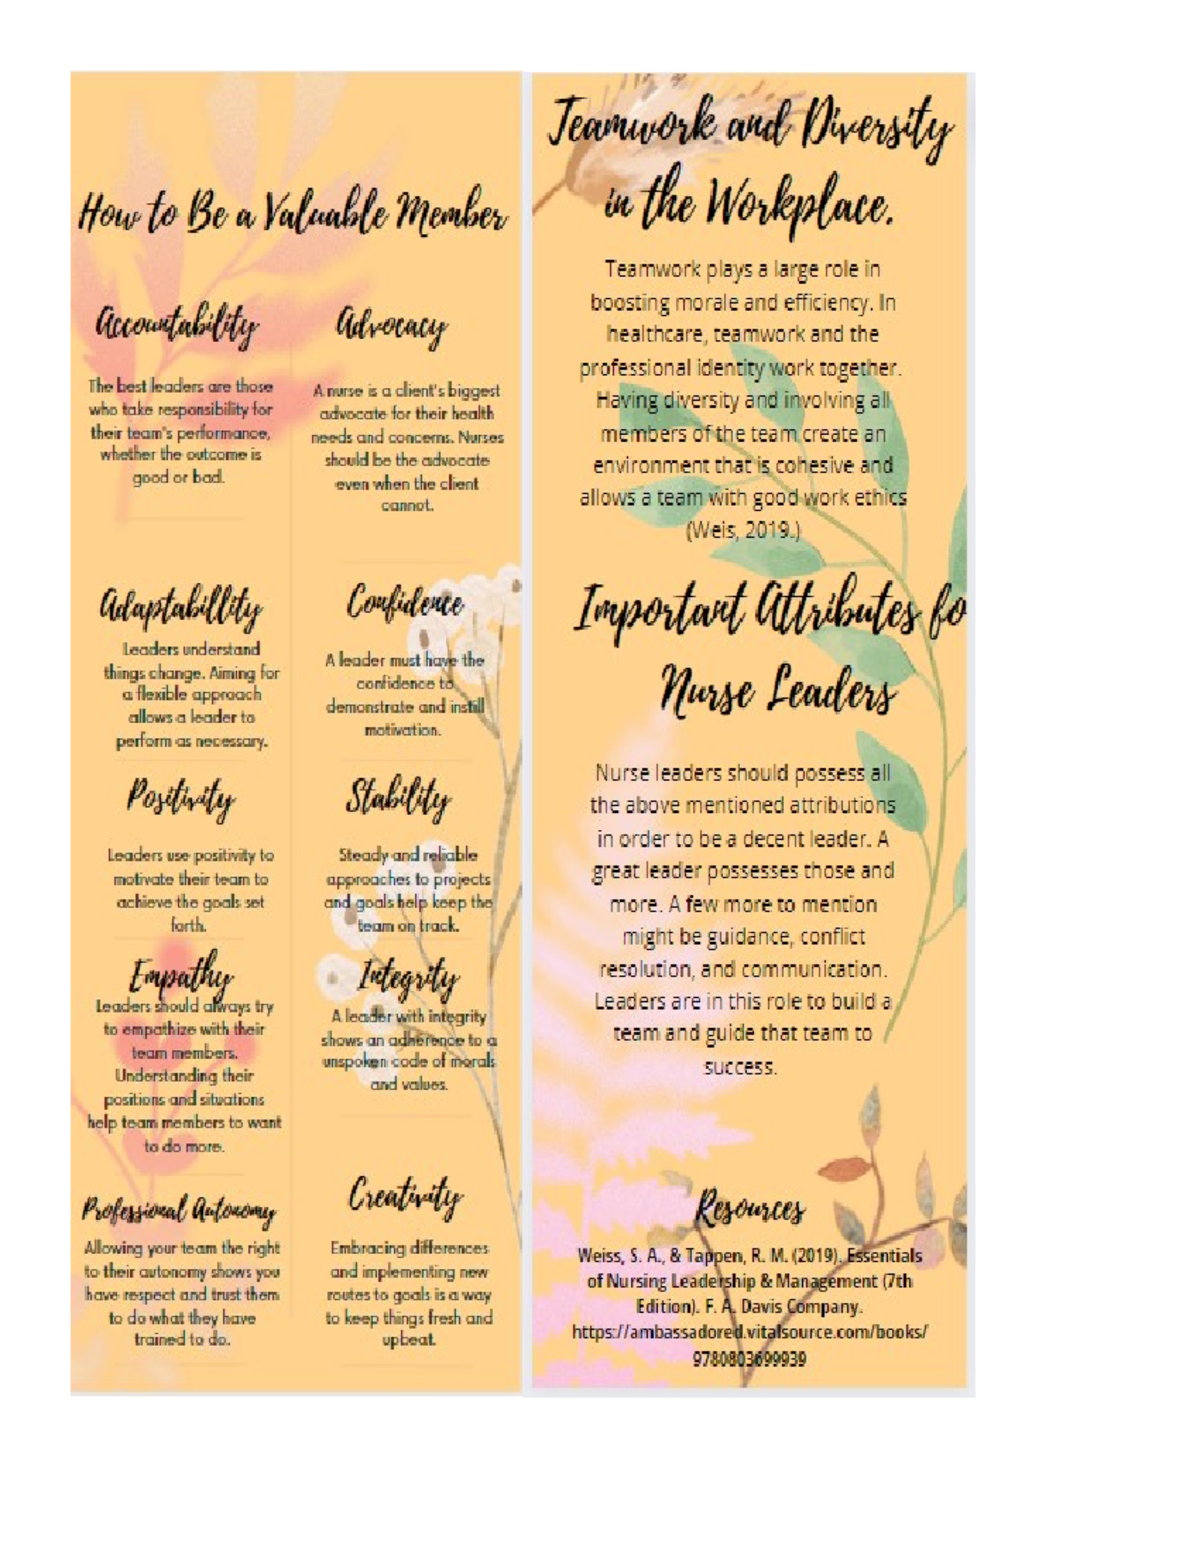 How to Be a Valuable Member
Accountability
The best leaders are those
who take responsibility for
their team's performance,
whether the outcome is
good or bad.
Advocacy
A nurse is a client's biggest
advocate for their health
needs and concerns. Nurses
should be the advocate
even when the client
cannot.
Adaptabillity
Leaders understand
things change. Aiming for
a flexible approach
allows a leader to
perform as necessary.
Confidence
A leader must have the
confidence to
demonstrate and instill
motivation.
Positivity
Leaders use positivity to
motivate their team to
achieve the goals set
forth.
Stability
Steady and reliable
approaches to projects
and goals help keep the
team on track.
Empathy
Leaders should always try
to empathize with their
team members.
Understanding their
positions and situations
help team members to want
to do more.
Integrity
A leader with integrity
shows an adherence to a
unspoken code of morals
and values.
Professional Autonomy
Allowing your team the right
to their autonomy shows you
have respect and trust them
to do what they have
trained to do.
Creativity
Embracing differences
and implementing new
routes to goals is a way
to keep things fresh and
upbeat.
Teamwork and Diversity
in the Workplace.
Teamwork plays a large role in
boosting morale and efficiency. In
healthcare, teamwork and the
professional identity work together.
Having diversity and involving all
members of the team create an
environment that is cohesive and
allows a team with good work ethics
(Weis, 2019.)
Important Attributes fo
Nurse Leaders
Nurse leaders should possess all
the above mentioned attributions
in order to be a decent leader. A
great leader possesses those and
more. A few more to mention
might be guidance, conflict
resolution, and communication.
Leaders are in this role to build a
team and guide that team to
success.
Resources
Weiss, S. A., & Tappen, R. M. (2019). Essentials
of Nursing Leadership & Management (7th
Edition). F. A. Davis Company.
https://ambassadored.vitalsource.com/books/
9780803699939